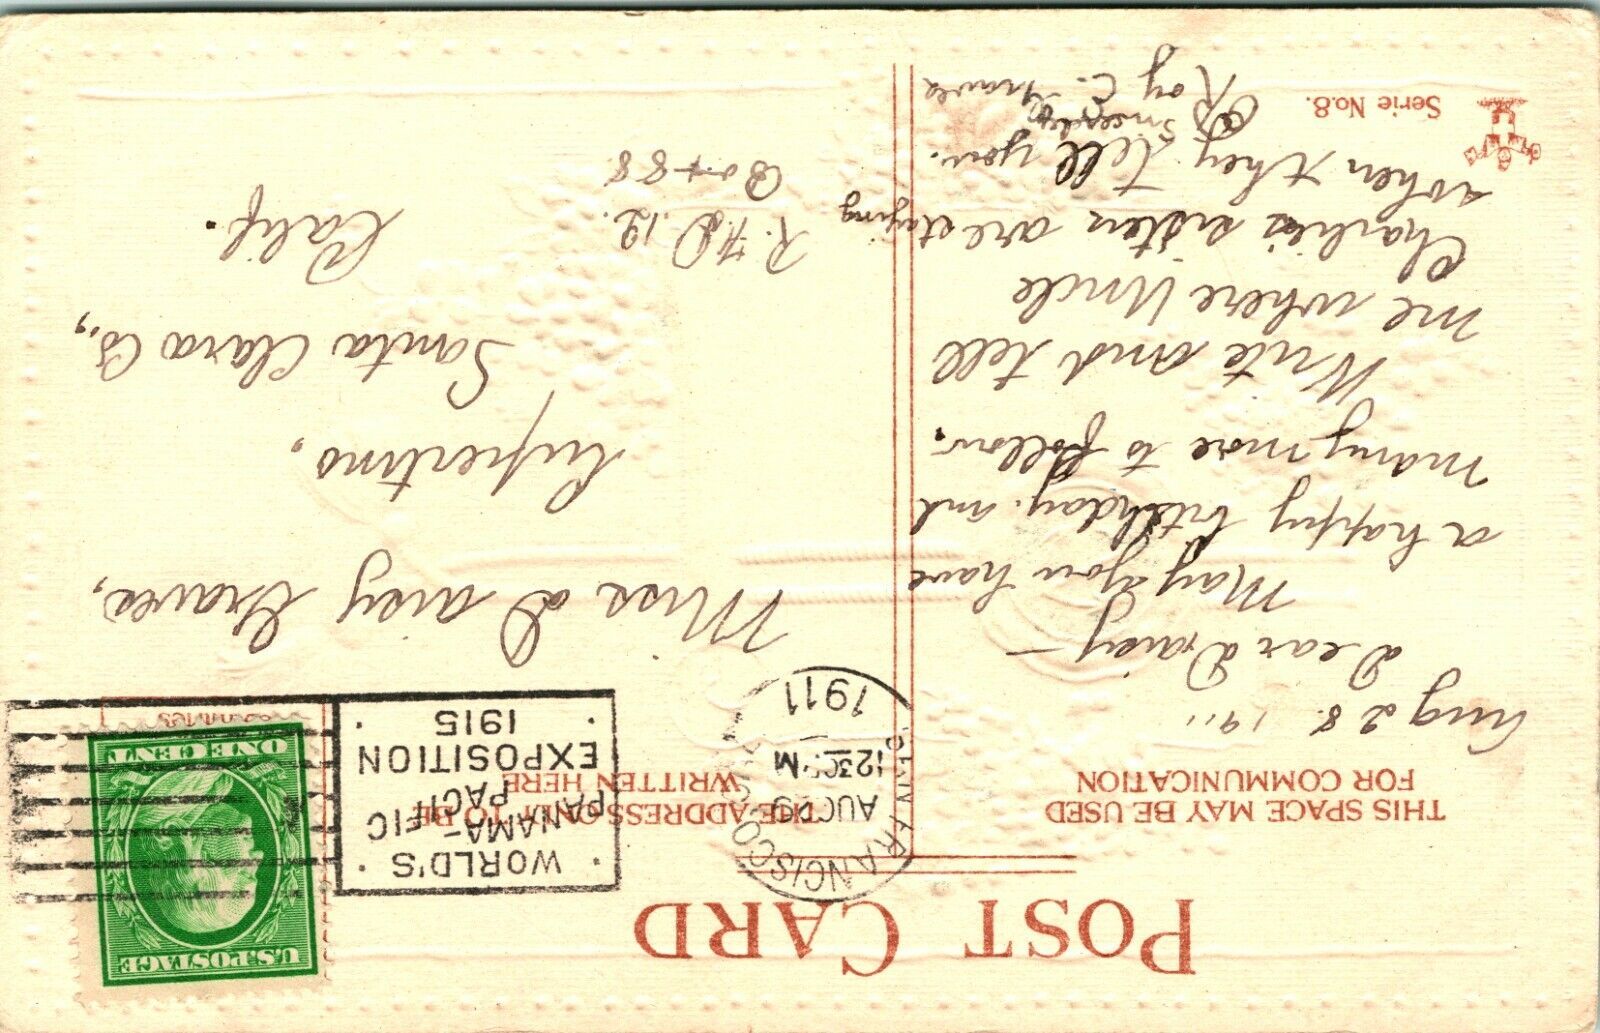 POST CARD
THIS SPACE MAY BE USED
FOR COMMUNICATION
THE ADDRESS ONLY TO BE
WRITTEN HERE
U.S. POSTAGE
ONE CENT
SAN FRANCISCO, CAL.
AUG 29
12 30 PM
1911
WORLD'S
PANAMA-PACIFIC
EXPOSITION
1915
Aug 28. 1911
Dear Daisy —
May you have
a happy birthday. and
many more to follow.
Write and tell
me where Uncle
Charlie's sister are staying
when they tell you.
Roy C. Graves
Miss Daisy Graves,
Cupertino,
Santa Clara Co.,
Calif.
R.F.D. 12.
Box 88
Serie No. 8.